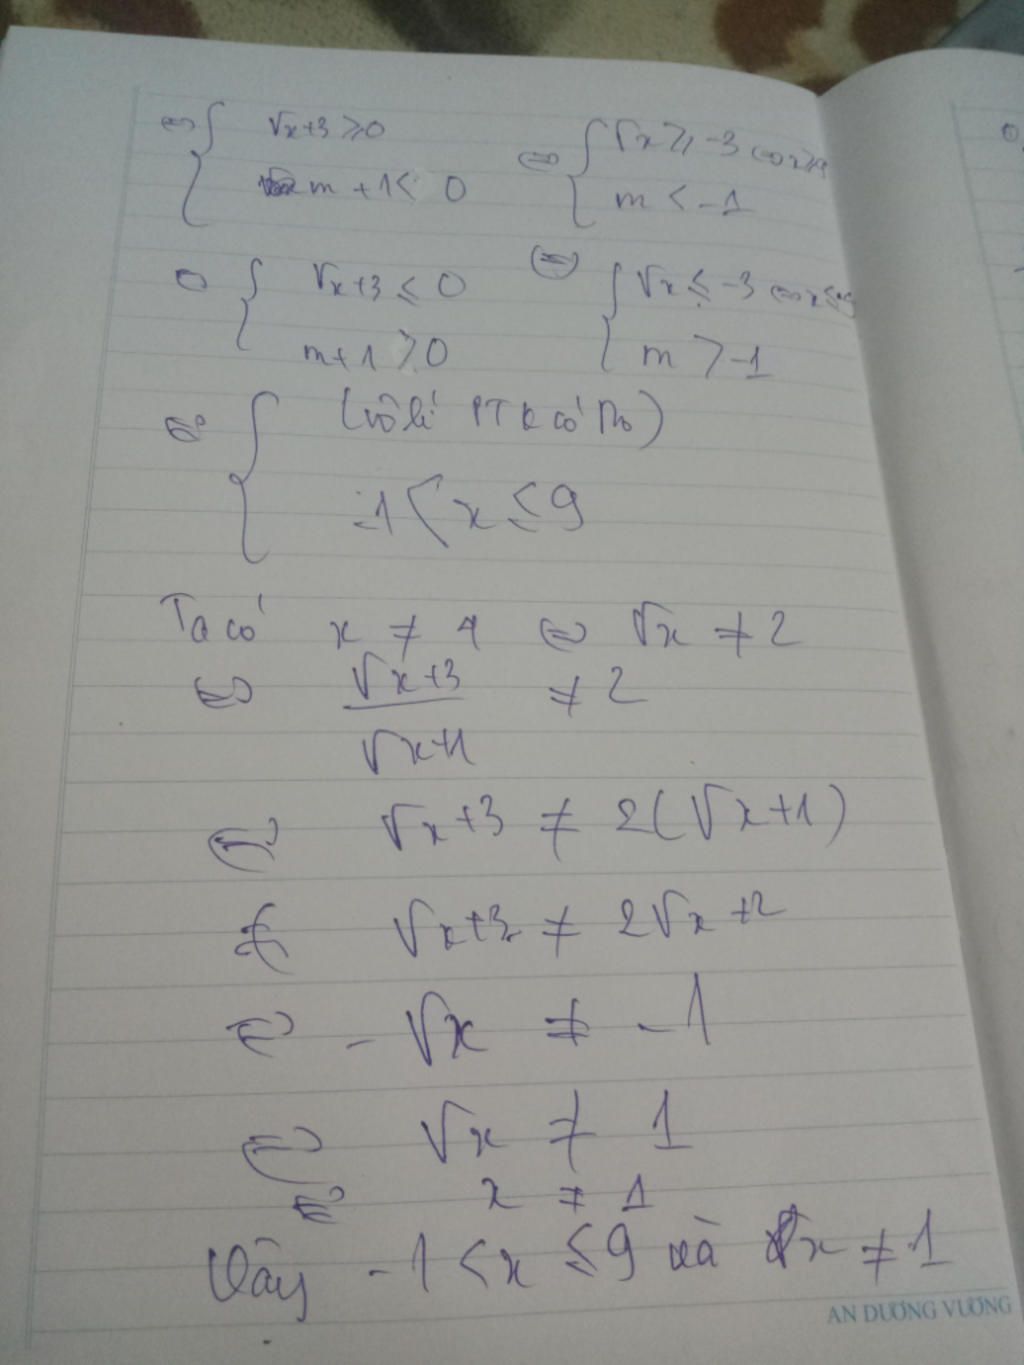 ⇔ { √x+3 ≥ 0 ⇔ { √x ≥ -3
m + 1 < 0 m < -1
{ √x+3 ≤ 0 ⇔ { √x ≤ -3
m + 1 > 0 m > -1
⇔ { (vô lí PT k có no)
-1 < x ≤ 9
Ta có x ≠ 4 ⇔ √x ≠ 2
⇔ √x+3 / √x+1 ≠ 2
⇔ √x+3 ≠ 2(√x+1)
√x+3 ≠ 2√x+2
⇔ -√x ≠ -1
⇔ √x ≠ 1
⇔ x ≠ 1
Vậy -1 < x ≤ 9 và x ≠ 1
AN DƯƠNG VƯƠNG